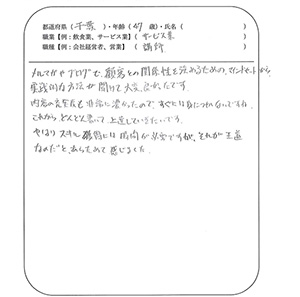 都道府県(千葉)・年齢(47 歳)・氏名( )
職業【例:飲食業、サービス業】(サービス業 )
職種【例:会社経営者、営業】(講師 )
メルマガやブログで、顧客との関係性を強めるための、マインドセットから、
実践的な方法が聞けて大変良かったです。
内容の完全度も非常に濃かったので、すぐには身につけられないですが、
これからどんどん書いて上達していきたいです。
やはりスキル獲得には時間が必要ですが、それが王道
なのだと、あらためて感じました。